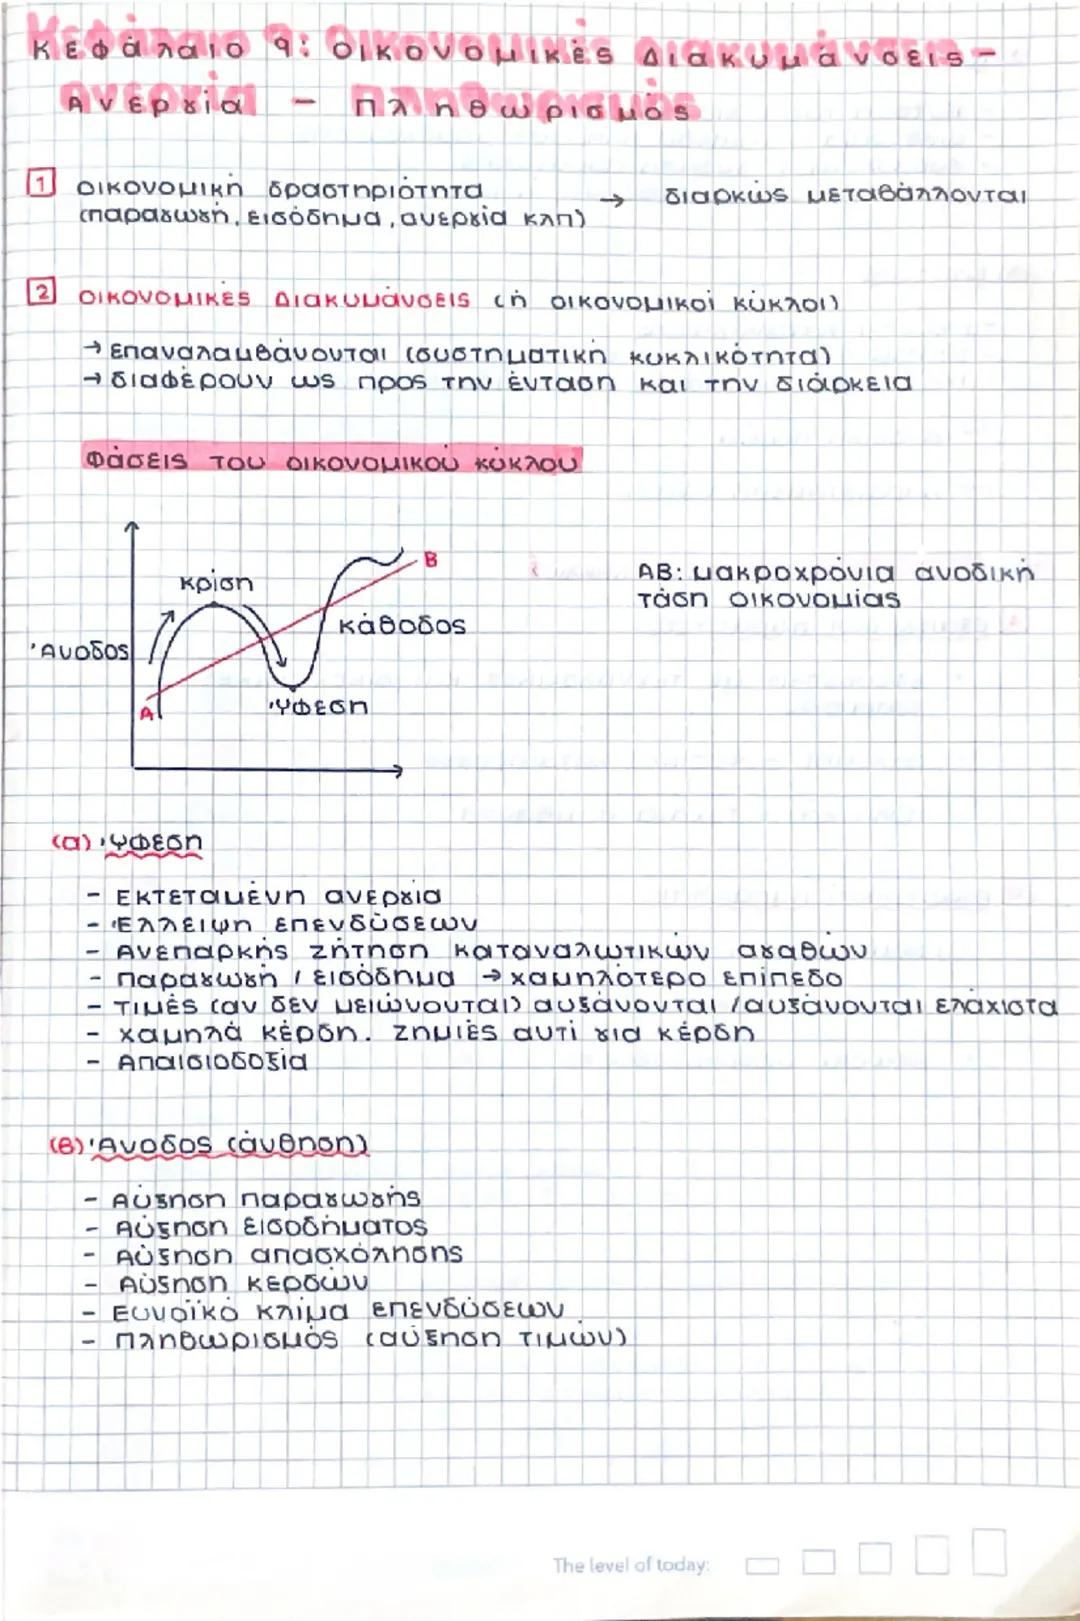 Κεφάλαιο 9: Οικονομικές Διακυμάνσεις -
Ανεργία - Πληθωρισμός
1 Οικονομική δραστηριότητα → διαρκώς μεταβάλλονται
(παραγωγή, εισόδημα, ανεργία κλπ)
2 Οικονομικές Διακυμάνσεις (ή οικονομικοί κύκλοι)
→ Επαναλαμβάνονται (συστηματική κυκλικότητα)
→ διαφέρουν ως προς την ένταση και την διάρκεια
Φάσεις του οικονομικού κύκλου
Β
κρίση
ΑΒ: μακροχρόνια ανοδική
τάση οικονομίας
κάθοδος
Άνοδος
Α
Ύφεση
(α) Ύφεση
- Εκτεταμένη ανεργία
- Έλλειψη επενδύσεων
- Ανεπαρκής ζήτηση καταναλωτικών αγαθών
- Παραγωγή / εισόδημα → χαμηλότερο επίπεδο
- Τιμές (αν δεν μειώνονται) αυξάνονται / αυξάνονται ελάχιστα
- χαμηλά κέρδη. Ζημιές αντί για κέρδη
- Απαισιοδοξία
(β) Άνοδος (άνθηση)
- Αύξηση παραγωγής
- Αύξηση εισοδήματος
- Αύξηση απασχόλησης
- Αύξηση κερδών
- Ευνοϊκό κλίμα επενδύσεων
- Πληθωρισμός (αύξηση τιμών)
The level of today: